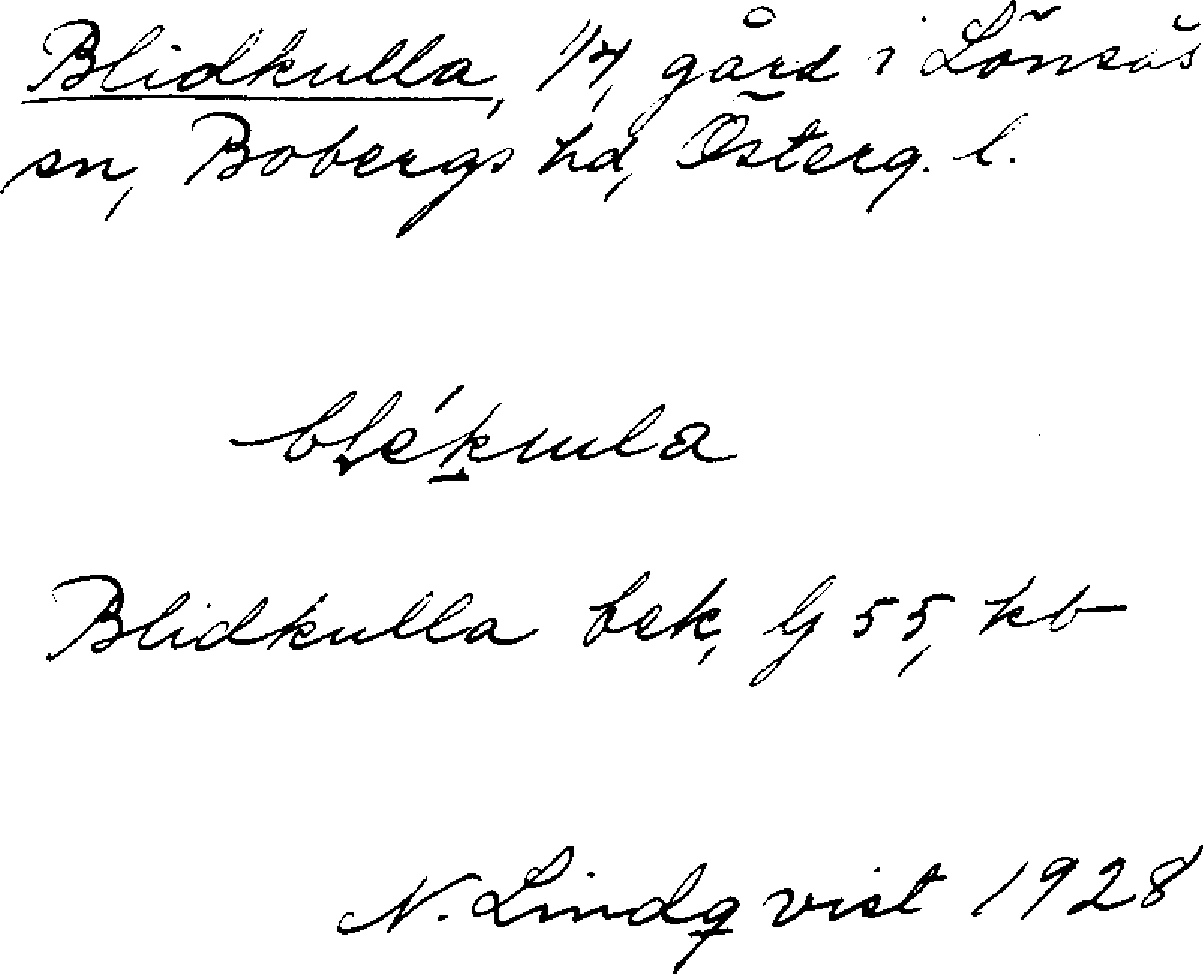 Blidkulla, 1/4, gård i Lönsås
sn, Bobergs hd, Österg. l.
blékula
Blidkulla bek, G 55, kb
N. Lindqvist 1928